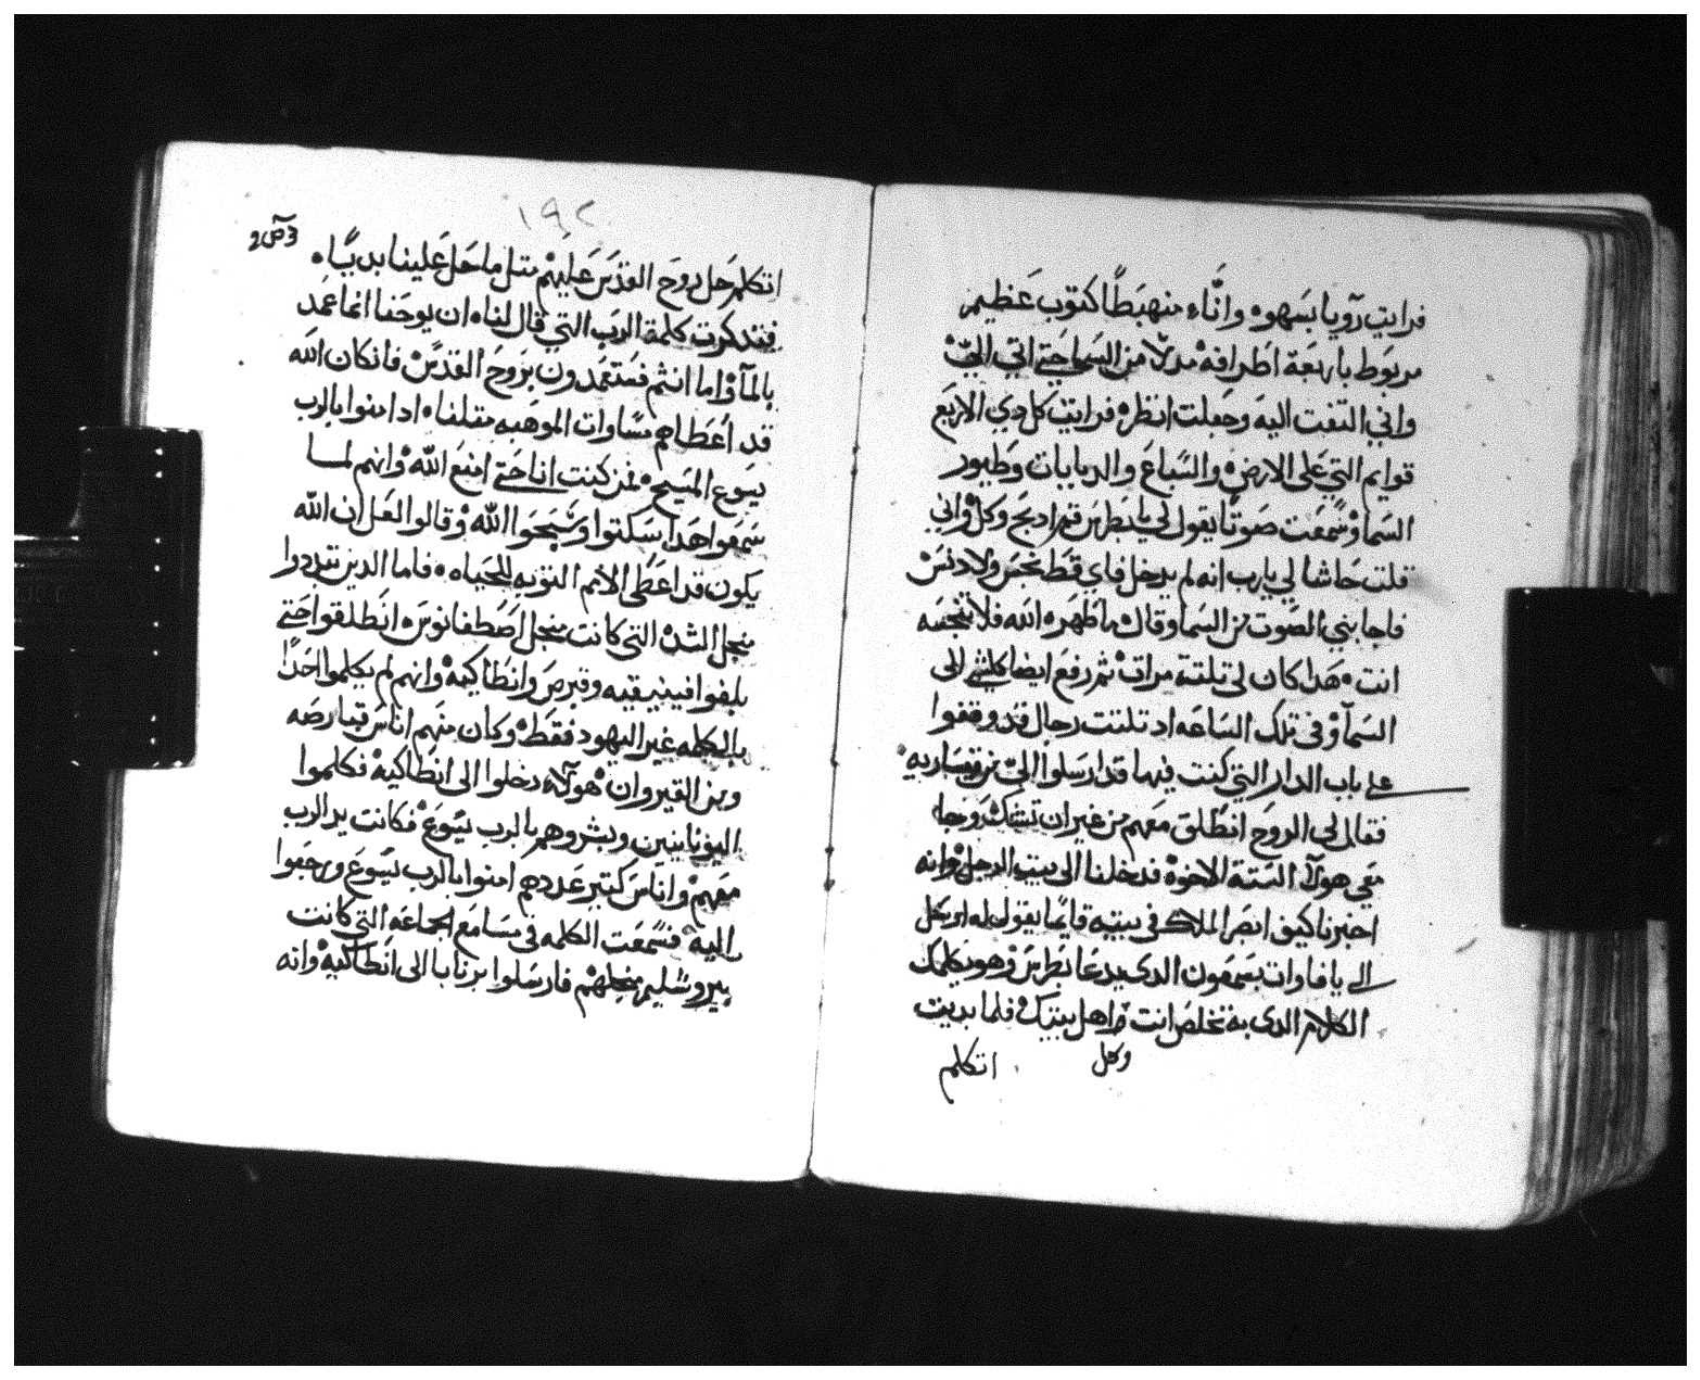 فرايت رآويا بسهوه واناء منهبطا كتوب عظيم
مربوط باربعة اطرافه مدلا من السما حتى اتى الي
واني التفت اليه وجعلت انظره فرايت كل دي الاربع
قوايم التي على الارض والسباع والدبابات وطيور
السما وسمعت صوتا يقول لي يا بطرس قم ادبح وكل واني
قلت حاشا لي يارب انه لم يدخل فاي قط نجس ولا دنس
فاجابني الصوت من السما وقال ما طهره الله فلا تنجسه
انت هدا كان لي تلتة مرات ثم رفع ايضا كلشي الى
السمآ وفي تلك الساعه اد تلتت رجال قد وقفوا
على باب الدار التي كنت فيها قد ارسلوا الي من قيساريه
فقال لي الروح انطلق معهم من غير ان تشك وجا
معي هولآ الستة الاخوة فدخلنا الى بيت الرجل وانه
اخبرنا كيف ابصر الملاك في بيته قايما يقول له ارسل
الى يافا وات بسمعون الدي يدعا بطرس وهو يكلمك
الكلام الدي به تخلص انت واهل بيتك فلما بديت
وكل
اتكلم
١٩٢
اتكلم حل روح القدس عليهم متل ما حل علينا بديا
فتدكرت كلمة الرب التي قال لنا ان يوحنا انما عمد
بالمآ واما انتم فستعمدون بروح القدس فانكان الله
قد اعطاهم مساوات الموهبه متلنا اد امنوا بالرب
يسوع المسيح فمن كنت انا حتى امنع الله وانهم لما
سمعوا هدا سكتوا وسبحوا الله وقالوا لعل ان الله
يكون قد اعطى الامم التوبه للحياه فاما الدين تبددوا
منجل الشده التي كانت منجل اصطفانوس انطلقوا حتى
بلغوا فينيقيه وقبرص وانطاكيه وانهم لم يكلموا احدا
بالكلمه غير اليهود فقط وكان منهم اناس قبارصه
ومن القيروان هولآء دخلوا الى انطاكيه فكلموا
اليونانيين وبشروهم بالرب يسوع فكانت يد الرب
معهم واناس كتير عددهم امنوا بالرب يسوع ورجعوا
اليه فسمعت الكلمه في مسامع الجماعه التي كانت
بيروشليم منجلهم فارسلوا برنابا الى انطاكيه وانه